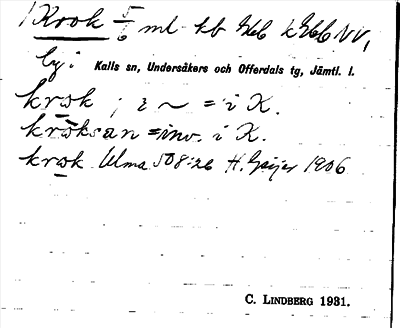 Krok 5/6 ml kb
by: Kalls sn, Undersåkers och Offerdals tg, Jämtl. l.
krok ; i ~ = i K.
kroksan = inv. i K.
krok Ulma 508:26 H. Geijer 1906
C. LINDBERG 1931.